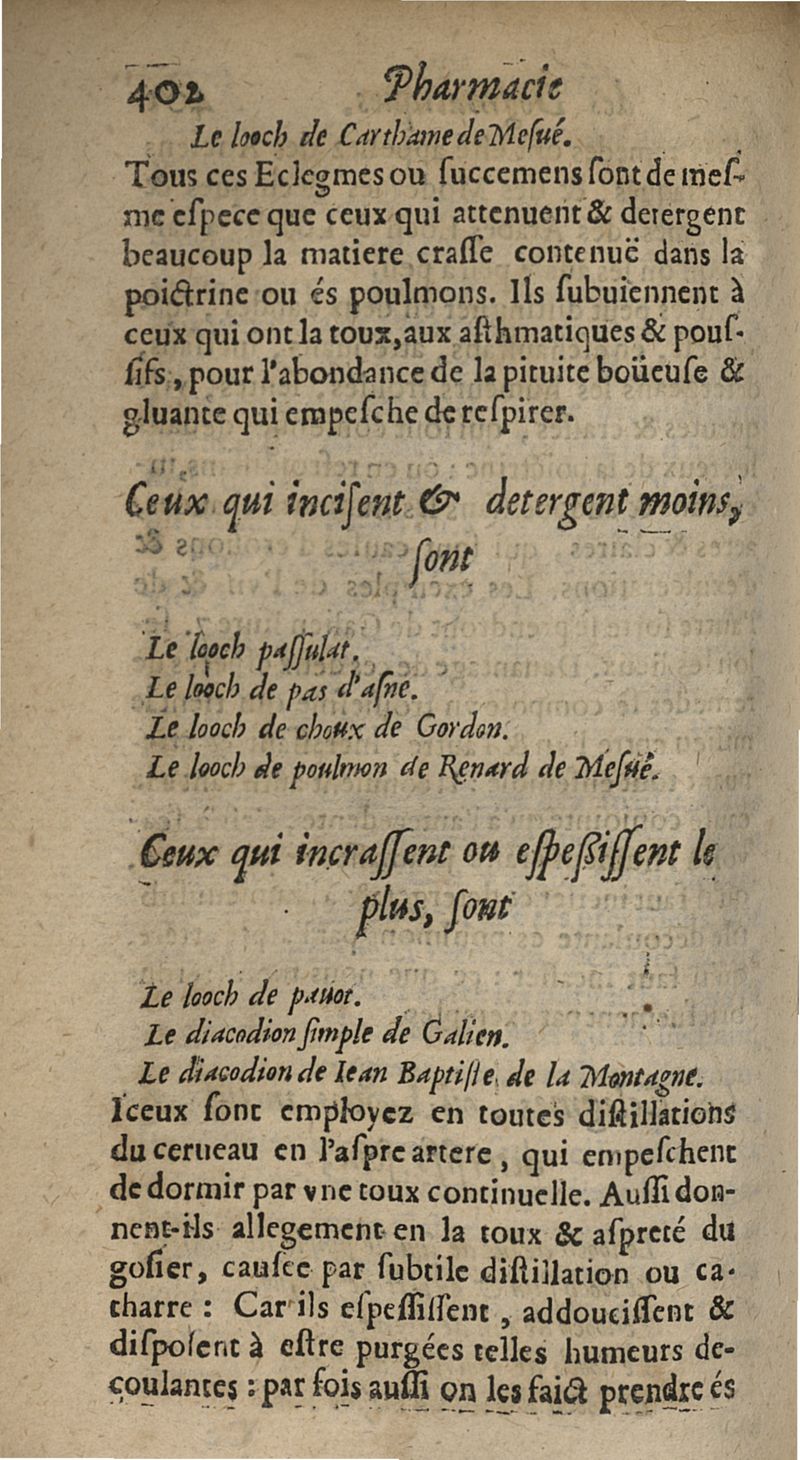 402 Pharmacie
Le looch de Carthame de Meſué.
Tous ces Eclegmes ou ſuccemens ſont de meſ-
me eſpece que ceux qui attenuent & detergent
beaucoup la matiere craſſe contenuë dans la
poictrine ou és poulmons. Ils ſubuiennent à
ceux qui ont la toux, aux aſthmatiques & pouſ-
ſifs, pour l'abondance de la pituite boüeuſe &
gluante qui empeſche de reſpirer.
Ceux qui inciſent & detergent moins,
ſont
Le looch paſſulat.
Le looch de pas d'aſne.
Le looch de choux de Gordon.
Le looch de poulmon de Renard de Meſué.
Ceux qui incraſſent ou eſpeßiſſent le
plus, ſont
Le looch de pauot.
Le diacodion ſimple de Galien.
Le diacodion de Iean Baptiſte de la Montagne.
Iceux ſont employez en toutes diſtillations
du cerueau en l'aſpre artere, qui empeſchent
de dormir par vne toux continuelle. Auſſi don-
nent-ils allegement en la toux & aſpreté du
goſier, cauſee par ſubtile diſtillation ou ca-
tharre : Car ils eſpeſſiſſent, addouciſſent &
diſpoſent à eſtre purgées telles humeurs de-
coulantes : par fois auſſi on les faict prendre és